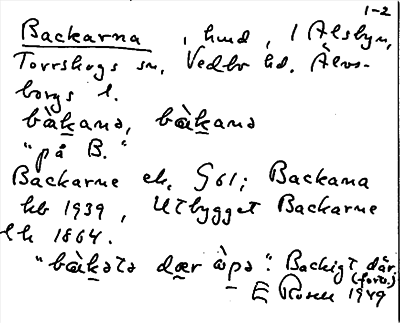 1-2
Backarna, hmd, i Ålsbyn,
Torrskogs sn, Vedbo hd. Älvs-
borgs l.
bàkanə, bàkanə
"på B."
Backarne ek. G61; Backana
hb 1939, Utbygget Backarne
lk 1864.
"bàkətə dær ὰpə": Backigt där.
(forts.)
E Rosen 1949